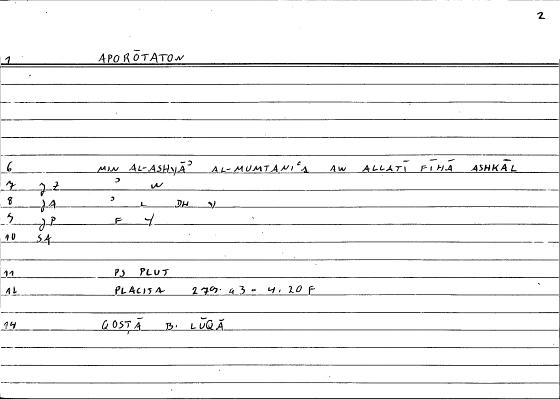 2
1 APORŌTATON
6 MIN AL-ASHYĀʾ AL-MUMTANIʿA AW ALLATĪ FĪHĀ ASHKĀL
7 Z ʾ W
8 A ʾ L DH Y
9 P F Y
10 SA
11 PS PLUT
12 PLACITA 279. A3 - 4. 20 F
14 QOSṬĀ B. LŪQĀ